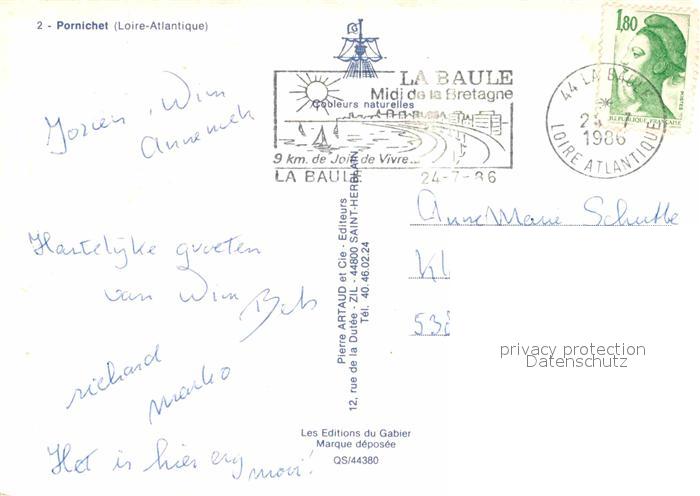 2 - Pornichet (Loire-Atlantique)
1,80
POSTES
REPUBLIQUE FRANÇAISE
44 LA BAULE
24-7
1986
LOIRE ATLANTIQUE
LA BAULE
Midi de la Bretagne
Couleurs naturelles
9 km. de Joie de Vivre...
LA BAULE 24-7-86
Jozien, Wim
Annemiek
Hartelijke groeten
van Wim Bob
richard
marko
Het is hier erg mooi!
Pierre ARTAUD et Cie - Editeurs
12, rue de la Dutée - ZIL - 44800 SAINT-HERBLAIN
Tél. 40.46.02.24
Anne Marie Schutte
Kl
53
privacy protection
Datenschutz
Les Editions du Gabier
Marque déposée
QS/44380